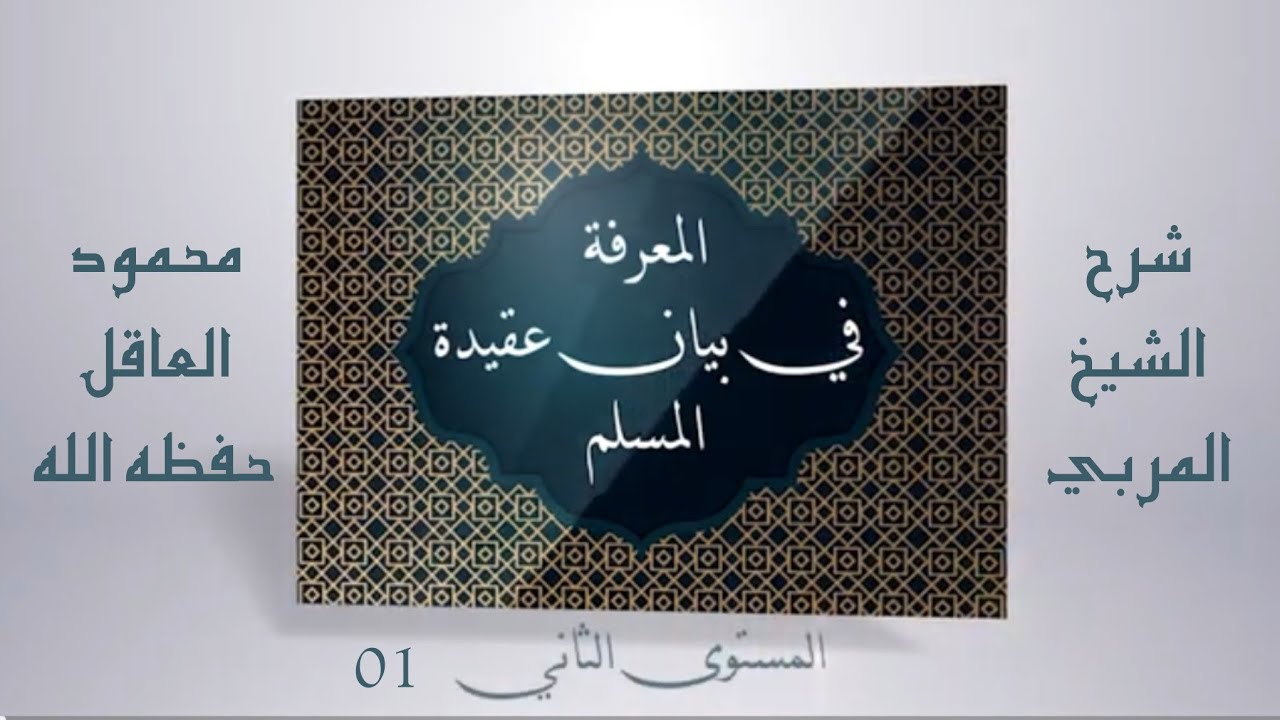 شرح
الشيخ
المربي
محمود
العاقل
حفظه الله
المعرفة
في بيان عقيدة
المسلم
المستوى الثاني 01